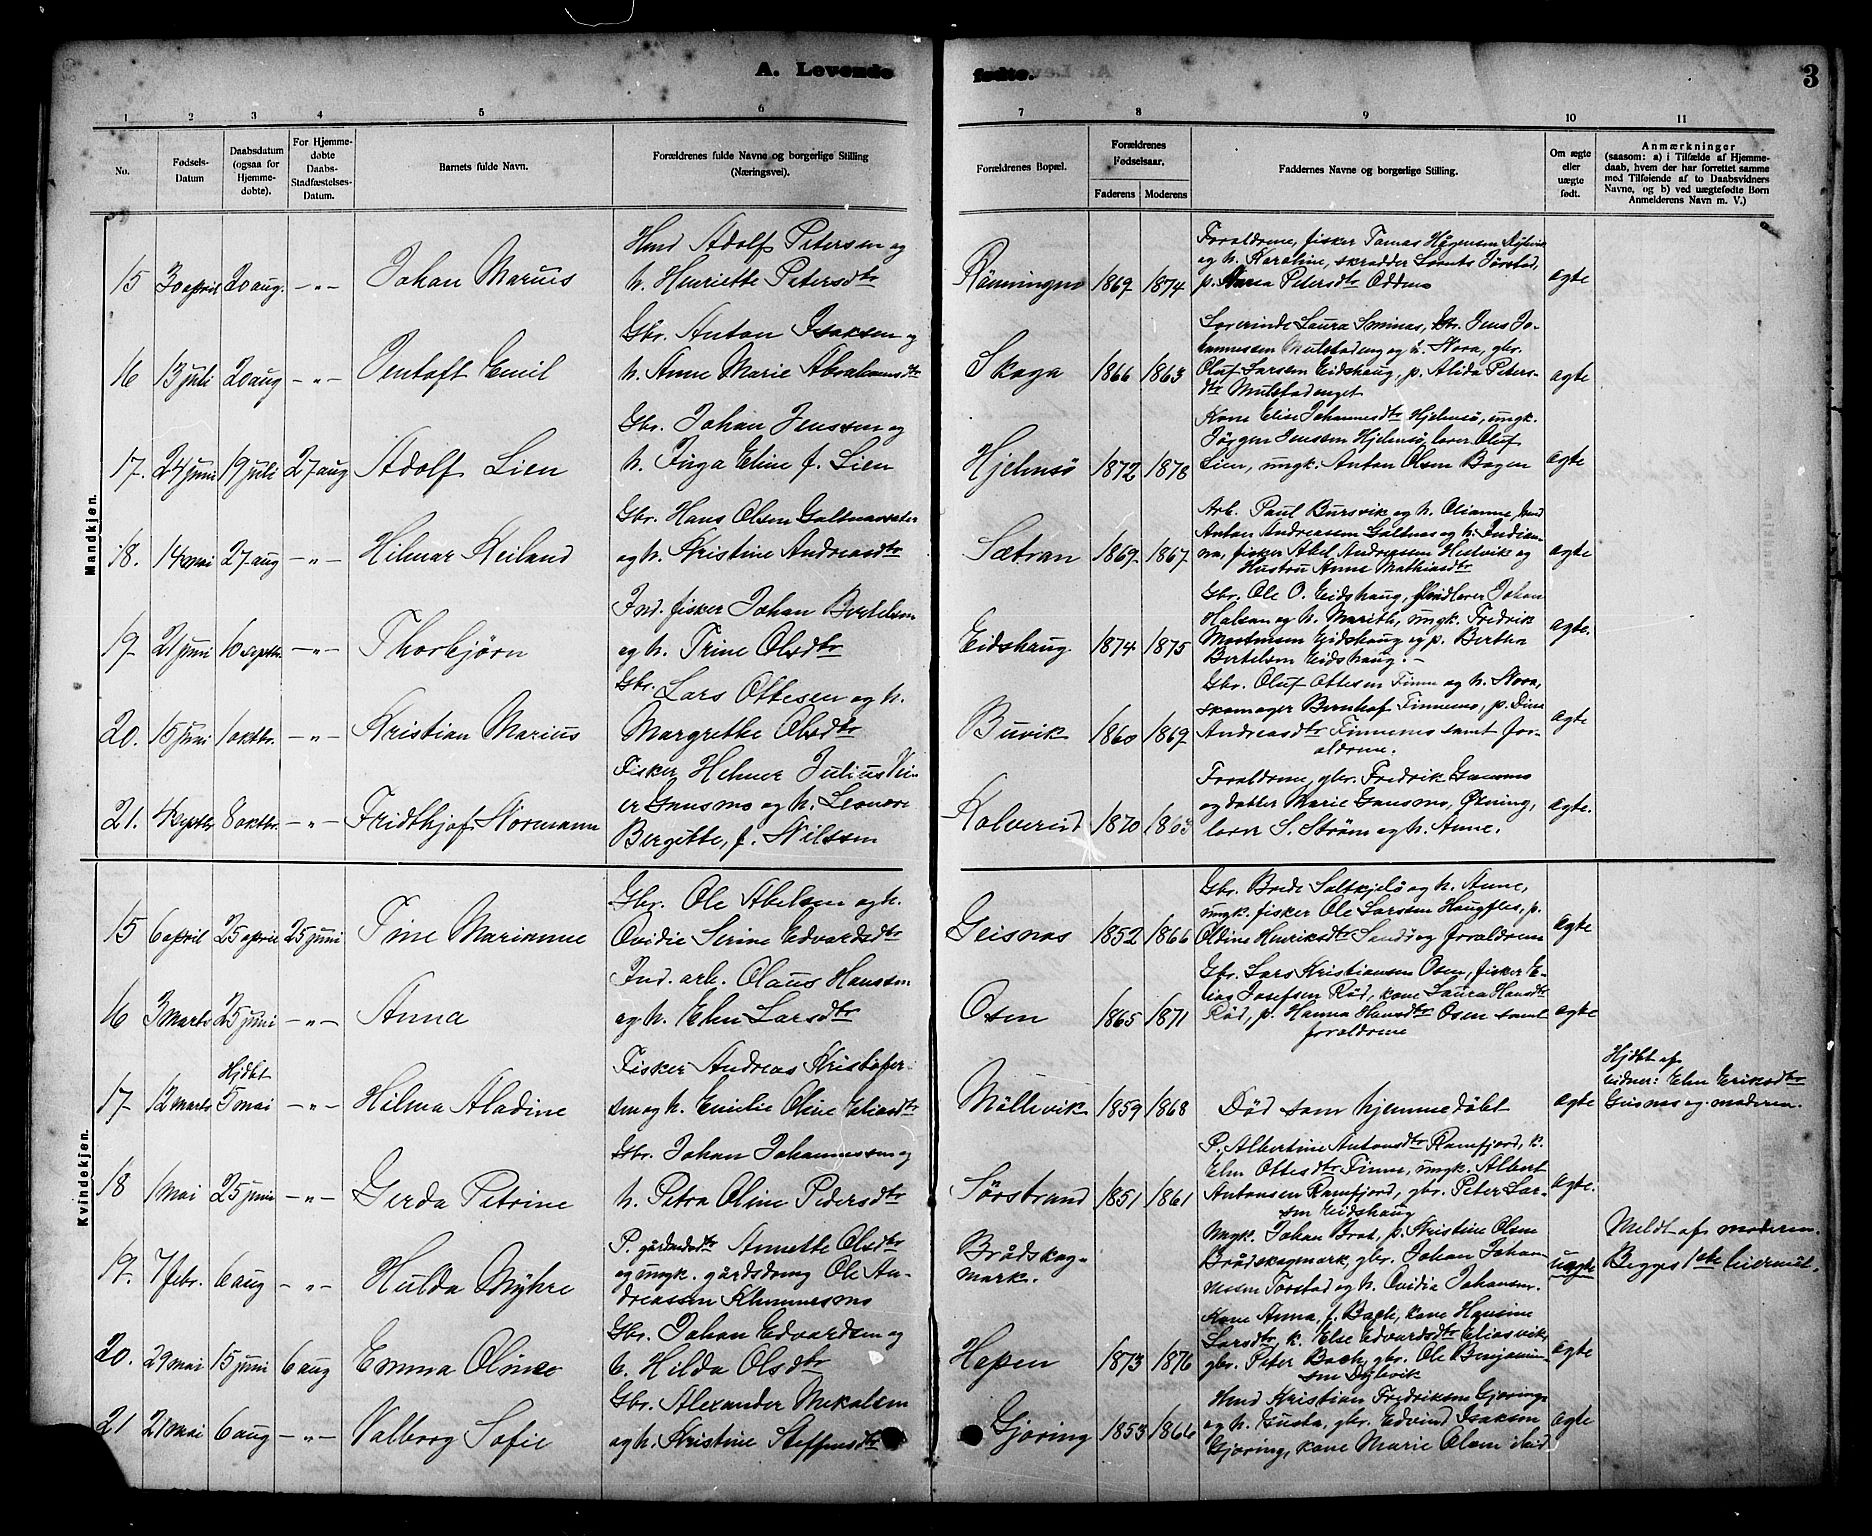 A. Levende fødte.
3
1 2 3 4 5 6 7 8 9 10 11
No.
Fødsels-
Datum
Daabsdatum
(ogsaa for
Hjemme-
døbte).
For Hjemme-
døbte
Daabs-
Stadfæstelses-
Datum.
Barnets fulde Navn.
Forældrenes fulde Navne og borgerlige Stilling
(Næringsvei).
Forældrenes Bopæl.
Forældrenes
Fødselsaar.
Faderens Moderens
Faddernes Navne og borgerlige Stilling.
Om ægte
eller
uægte
født.
Anmærkninger
(saasom: a) i Tilfælde af Hjemme-
daab, hvem der har forrettet samme
med Tilføiende af to Daabsvidners
Navne, og b) ved uægtefødte Børn
Anmelderens Navn m. V.)
Mandkjøn.
15 30 april 20 aug. -"- Johan Marius
Hmd Adolf Petersen og
h. Henriette Petersdtr
1869 1874
Forældrene, fisker Tomas
og h. Karoline, skrædder Jørstad,
p. Maria Petersdtr Oddmo
ægte
16 13 juli 20 aug -"- Jentoft Emil
Gbr. Anton Isaksen og
h. Anne Marie Abrahamsdtr
Skaga 1866 1863
Laura jens Jo-
hannessen og h. Nora, gbr.
Oluf Larsen Eidshaug, p. Alida Peters-
dtr Mulstadenget
ægte
17. 24 juni 19 juli 27 aug Adolf Lien
Gbr. Johan Jenssen og
h. Inga Eline f. Lien
Hjelmsö 1872 1878
Kone Elise Johannesdtr Hjelmsö, ungk.
Jörgen Jenssen Hjelmsö, lærer Oluf
Lien, ungk. Anton Olsen Bogen
ægte
18. 14 mai 27 aug -"- Hilmar Meiland
Gbr. Hans Olsen
og h. Kristine Andreasdtr
Sætran 1869 1867
Arb. Paul Bursvik og h. Olianna, hmd
Anton Andreassen og h. Indian-
na, fisker Abel Andreassen Hestvik og
Hustru Anne Mathiasdtr
ægte
19. 21 juni 10 septbr. -"- Thorbjørn
Ind. fisker Johan Bertelsen
og h. Trine Olsdtr
Eidshaug 1874 1875
Gbr. Ole O. Eidshaug, Johan
og h. Marith, ungk. Fredrik
Mortensen Eidshaug og p. Berthe
Bertelsen Eidshaug. -
ægte.
20. 15 juni 1 oktbr. -"- Kristian Marius
Gbr. Lars Ottesen og h.
Margrethe Olsdtr
Buvik 1860 1869
Gbr. Oluf Ottesen Finne og h. Nora,
skomager Bernhof Finnemo, p. Dina
Andreasdtr Finnemo samt for-
ældrene.
ægte
21. 4 septbr 8 oktbr. -"- Fridthjof Normann
Fisker Helmer Julius
Gausmo og h. Leonore
Bergitte, f. Nilssen
Kolvereid 1870 1863
Forældrene, gbr. Fredrik Gausmo
og datter Marie Gausmo, Økning,
lærer S. Strøm og h. Anne.
ægte.
Kvindekjøn.
15 6 april 25 april 25 juni Tine Marianne
Gbr. Ole Abelsen og h.
Ovidie Serine Edvardsdtr
Geisnes 1852 1866
Gbr. Brede Saltkjelö og h. Anne,
ungk. fisker Ole Larsen Haugfles, p.
Oldine Henriksdtr Sandö og forældrene
ægte
16 3 marts 25 juni -"- Anna
Ind. arb. Olaus Hanssen
og h. Elen Larsdtr
Osen 1865 1871
Gbr. Lars Kristiansen Osen, fisker E-
lias Josefsen Röd, kone Laura Hansdtr
Röd, p. Hanna Hansdtr Osen samt
forældrene
ægte
17 12 marts Hjdbt 5 mai -"- Hilma Aladine
Fisker Andreas Kristofer-
sen og h. Emilie Oline Eliasdtr
Möllevik 1859 1868
Död som hjemmedöbt
ægte
Hjdbt af
Elen Eriksdtr
Geisnes og moderen.
18 1 mai 25 juni -"- Gerda Petrine
Gbr. Johan Johannessen og
h. Petra Oline Pedersdtr
Sörstrand 1851 1861
P. Albertine Antonsdtr Ramfjord, k.
Elen Ottesdtr Finne, ungk. Albert
Antonsen Ramfjord, gbr. Peter Lar-
sen Eidshaug
ægte.
19. 7 febr. 6 aug -"- Hulda Myhre
P. Annette Olsdtr
og ungk. gårdsdreng Ole An-
dreassen Klemmesmo
Brådskag-
mark.
Ungk. Johan Brat, p. Kristine Olsen
Brådskagmark, gbr. Johan Johan-
nesen Torstad og h. Ovidia Johansen.
uægte
Meldt af moderen.
Begges 1ste leiermål.
20. 29 mai 15 juni 6 aug Emma Oline
Gbr. Johan Edvardsen og
h. Hilda Olsdtr
Hopen 1873 1876
Kone Anna f. Bach, kone Hansine
Larsdtr, k. Else Edvardsdtr Eliasvik,
gbr. Peter Bach, gbr. Ole Benjamin-
sen
ægte
21 21 mai 6 aug -"- Valborg Sofie
Gbr. Alexander Mikalsen
og h. Kristine Steffensdtr
Gjæring 1853 1866
Hmd Kristian Fredriksen Gjæring
og h. Gusta, gbr. Edvind Isaksen
Gjæring, kone Marie Olsen ibid
ægte